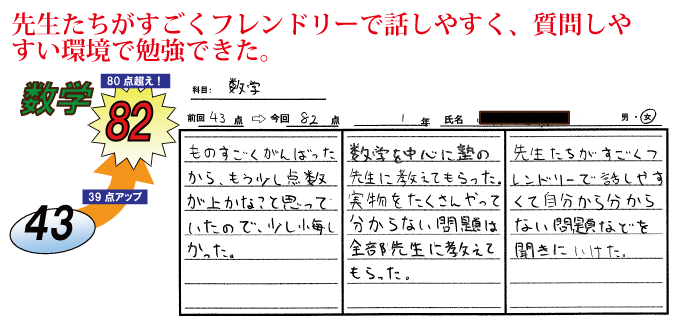 先生たちがすごくフレンドリーで話しやすく、質問しや
すい環境で勉強できた。
数学
80点超え！
82
39点アップ
43
科目： 数学
前回 43 点 ⇨ 今回 82 点 1 年 氏名 男・女
ものすごくがんばった
から、もう少し点数
が上かなこと思って
いたので、少し悔し
かった。
数学を中心に塾の
先生に教えてもらった。
実物をたくさんやって
分からない問題は
全部先生に教えて
もらった。
先生たちがすごくフ
レンドリーで話しやす
くて自分から分から
ない問題などを
聞きにいけた。